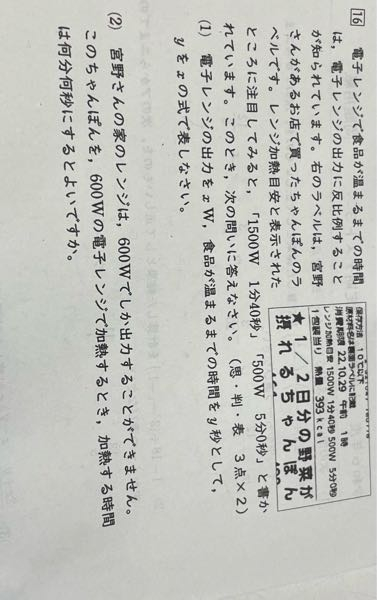 16 電子レンジで食品が温まるまでの時間
は，電子レンジの出力に反比例すること
が知られています。右のラベルは，宮野
さんがあるお店で買ったちゃんぽんのラ
ベルです。レンジ加熱目安と表示された
ところに注目してみると，「1500W 1分40秒」「500W 5分0秒」と書か
れています。このとき，次の問いに答えなさい。 （思・判・表 3点×2）
(1) 電子レンジの出力をxW，食品が温まるまでの時間をy秒として，
yをxの式で表しなさい。
(2) 宮野さんの家のレンジは，600Wでしか出力することができません。
このちゃんぽんを，600Wの電子レンジで加熱するとき，加熱する時間
は何分何秒にするとよいですか。
保存方法 10℃以下
原材料名は裏面ラベルに記載
消費期限 22.10.29 午前 1時
レンジ加熱目安 1500W 1分40秒 500W 5分0秒
1包装当り 熱量 393kcal
★1/2日分の野菜が
摂れるちゃんぽん